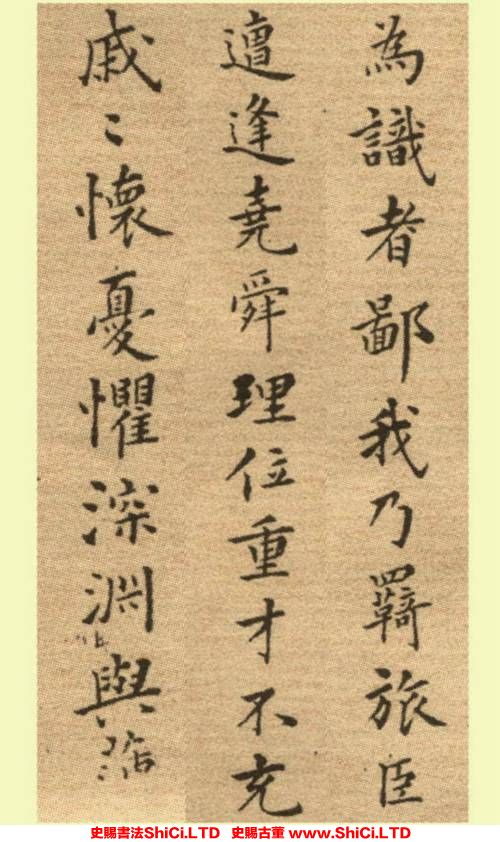 為識者鄙我乃羈旅臣
遭逢堯舜理位重才不充
戚〻懷憂懼深淵與
史賜書法ShiCi.LTD 史賜古董 www.ShiCi.LTD